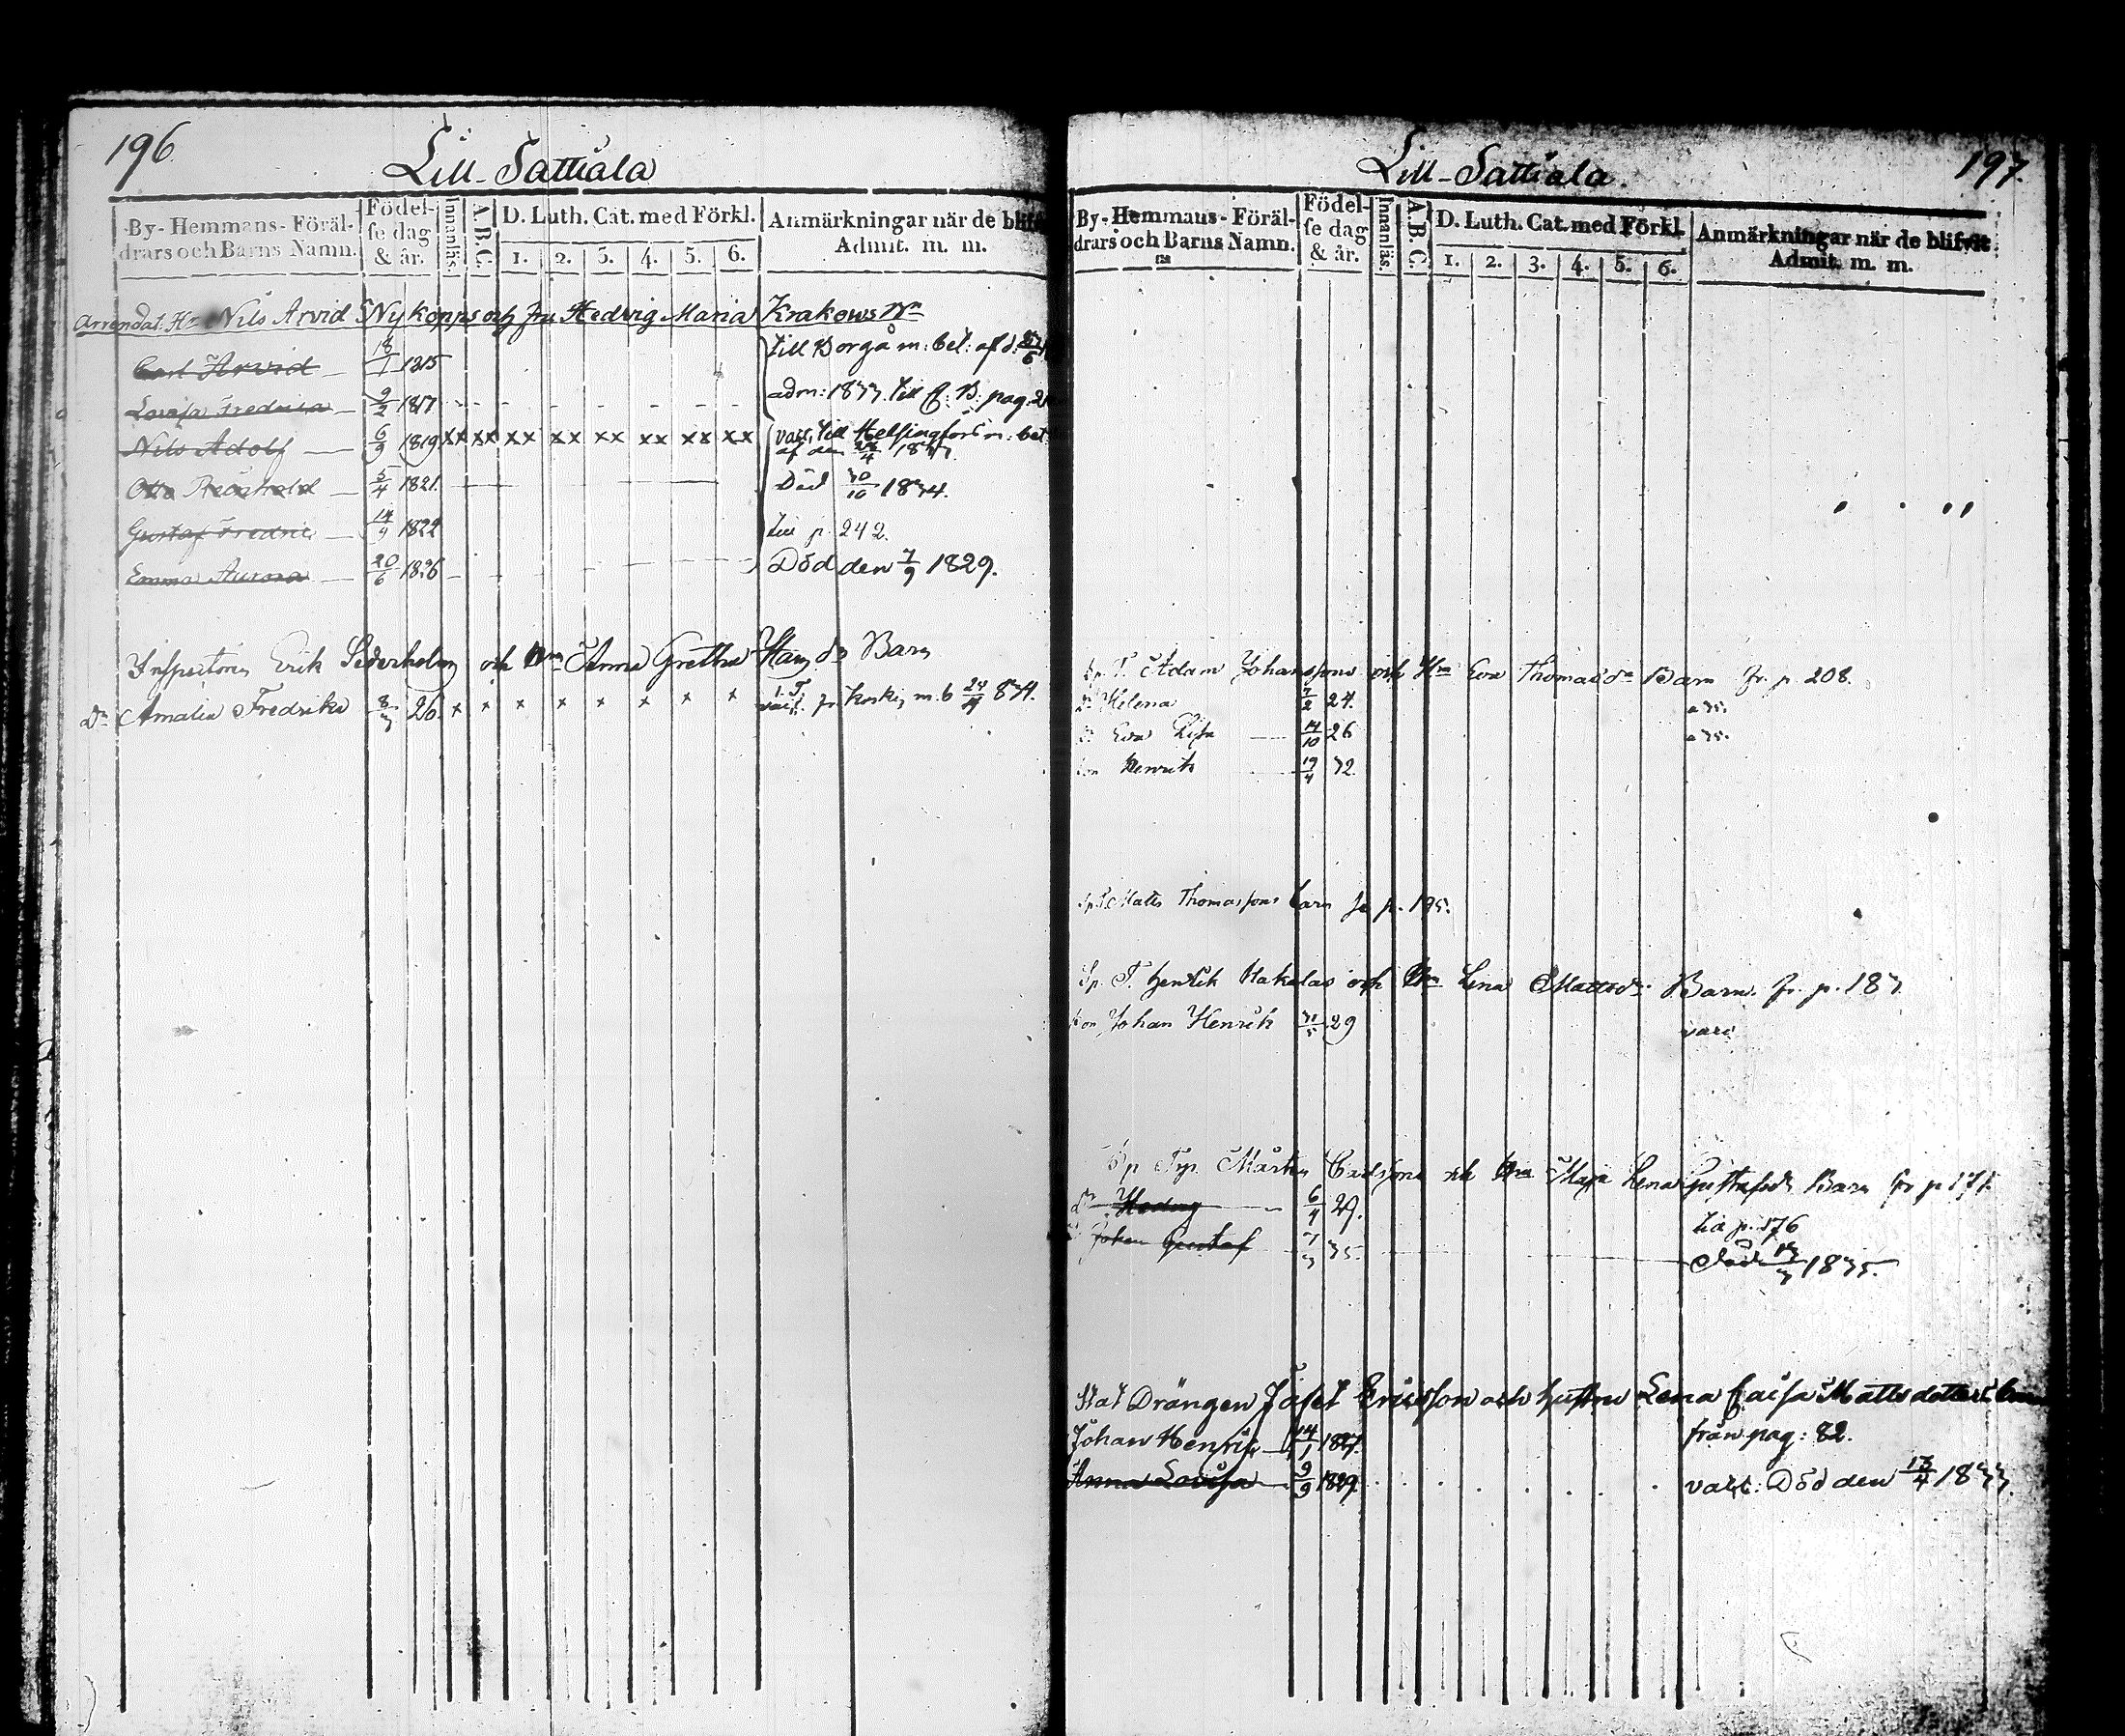 196.
Lill-Sattiala
By- Hemmans- Föräl-
drars och Barns Namn.
Födel-
se dag
& år.
Innanläs.
A.B.C.
D. Luth. Cat. med Förkl.
1. 2. 3. 4. 5. 6.
Anmärkningar när de
Admit. m. m.
Arrendat. Nils Arvid Nykopps och fru Hedvig Maria Krakows
Carl Arvid 18/1 1815 Till Borgå m: bet: af d:
Lovisa Fredrica 9/2 1817 adm: 1833 Till pag.
Nils Adolf 6/9 1819 xx xx xx xx xx xx xx xx Till Helsingfors m: bet
af den /4 18
Otto Reinhold 5/4 1821. Död 30/10 1834.
Gustaf Fredric 14/9 182 p. 242.
Emma Aurora 20/6 1826 Död den 7/9 1829.
Inspectoren Erik Sederholm och Anna Gretha Barn
Dr Amalia Fredrika 8/3 26. x x x x x x x x fr. Koski m. b 834.
Lill-Sattiala.
197.
By- Hemmans- Föräl-
drars och Barns Namn.
Födel-
se dag
& år.
Innanläs.
A.B.C.
D. Luth. Cat. med Förkl.
1. 2. 3. 4. 5. 6.
Anmärkningar när de blifvit
Admit. m. m.
T. Adam Johanssons och Hru Eva Thomasdr Barn fr. p. 208.
Helena 7/2 24.
Eva Lisa 14/10 26
Henrik 19/4 32.
Matts Thomassons barn p. 195.
Sp. T. Henrik Makelas och Hru Lena Mattsdr Barn. fr. p. 183
son Johan Henrik 31/5 29
Sp Mårten Carlssons och Hru Maja Lena Gustafsdr Barn fr p 171.
dr Hedvig 6/4 29. p. 176
Johan Gustaf 35. Död 1835.
Stat Drängen Jafet Ericsson och hustru Lena Caisa Mattsdotters
Johan Henric 14/1 1827. från pag: 82.
Anna Lovisa 9/9 1829. Död den 13/4 1833.